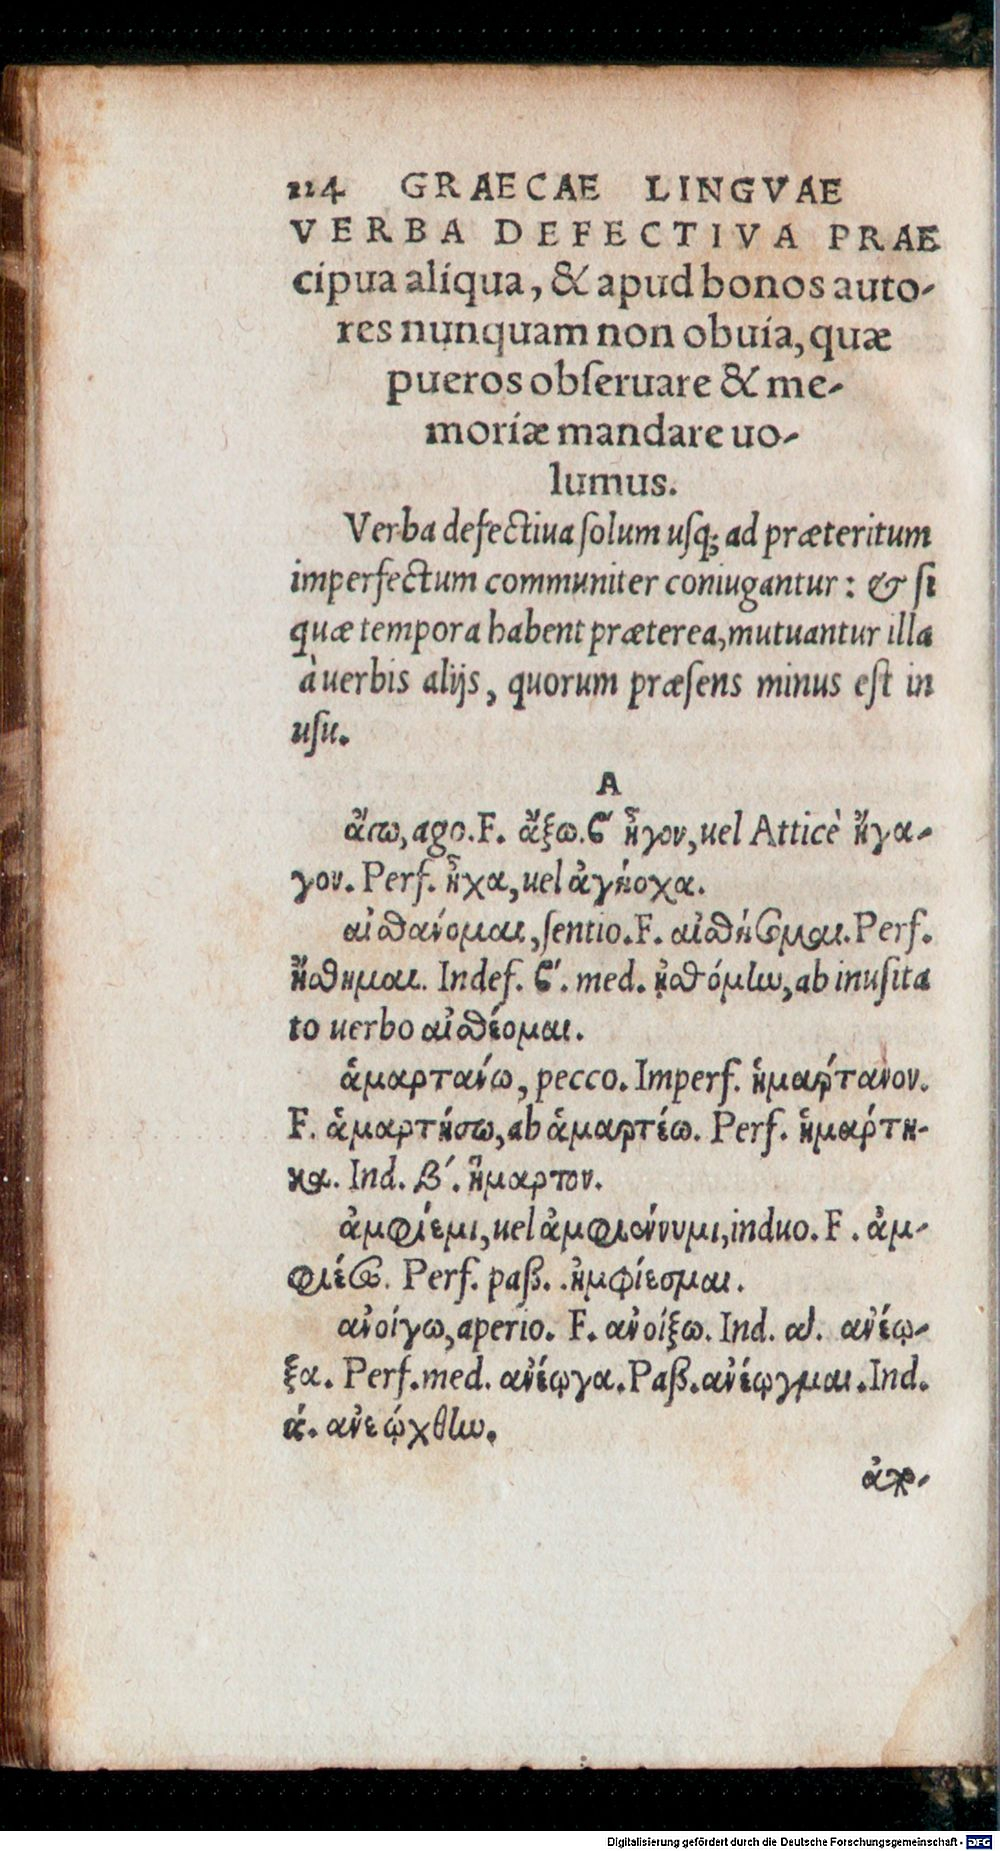 114 GRAECAE LINGVAE
VERBA DEFECTIVA PRAE
cipua aliqua, & apud bonos auto-
res nunquam non obuia, quæ
pueros obſeruare & me-
moriæ mandare uo-
lumus.
Verba defectiua ſolum uſq; ad præteritum
imperfectum communiter coniugantur: & ſi
quæ tempora habent præterea, mutuantur illa
à uerbis alijs, quorum præſens minus eſt in
uſu.
A
ago. F. ἄξω. ϛ ἦγον, uel Atticè ἤγα-
γον. Perf. ἦχα, uel ἀγήοχα.
αἰσθάνομαι, ſentio. F. αἰσθήσομαι. Perf.
ἤσθημαι. Indef. ϛ'. med. ἠσθόμην, ab inuſita
to uerbo αἰσθέομαι.
ἁμαρτάνω, pecco. Imperf. ἡμάρτανον.
F. ἁμαρτήσω, ab ἁμαρτέω. Perf. ἡμάρτη-
κα. Ind. β'. ἥμαρτον.
ἀμφίεμι, uel ἀμφιέννυμι, induo. F. ἀμ-
φιέσω. Perf. paß. ἠμφίεσμαι.
ἀνοίγω, aperio. F. ἀνοίξω. Ind. α. ἀνέῳ-
ξα. Perf. med. ἀνέῳγα. Paß. ἀνέῳγμαι. Ind.
ά. ἀνεῴχθην.
Digitalisierung gefördert durch die Deutsche Forschungsgemeinschaft - DFG